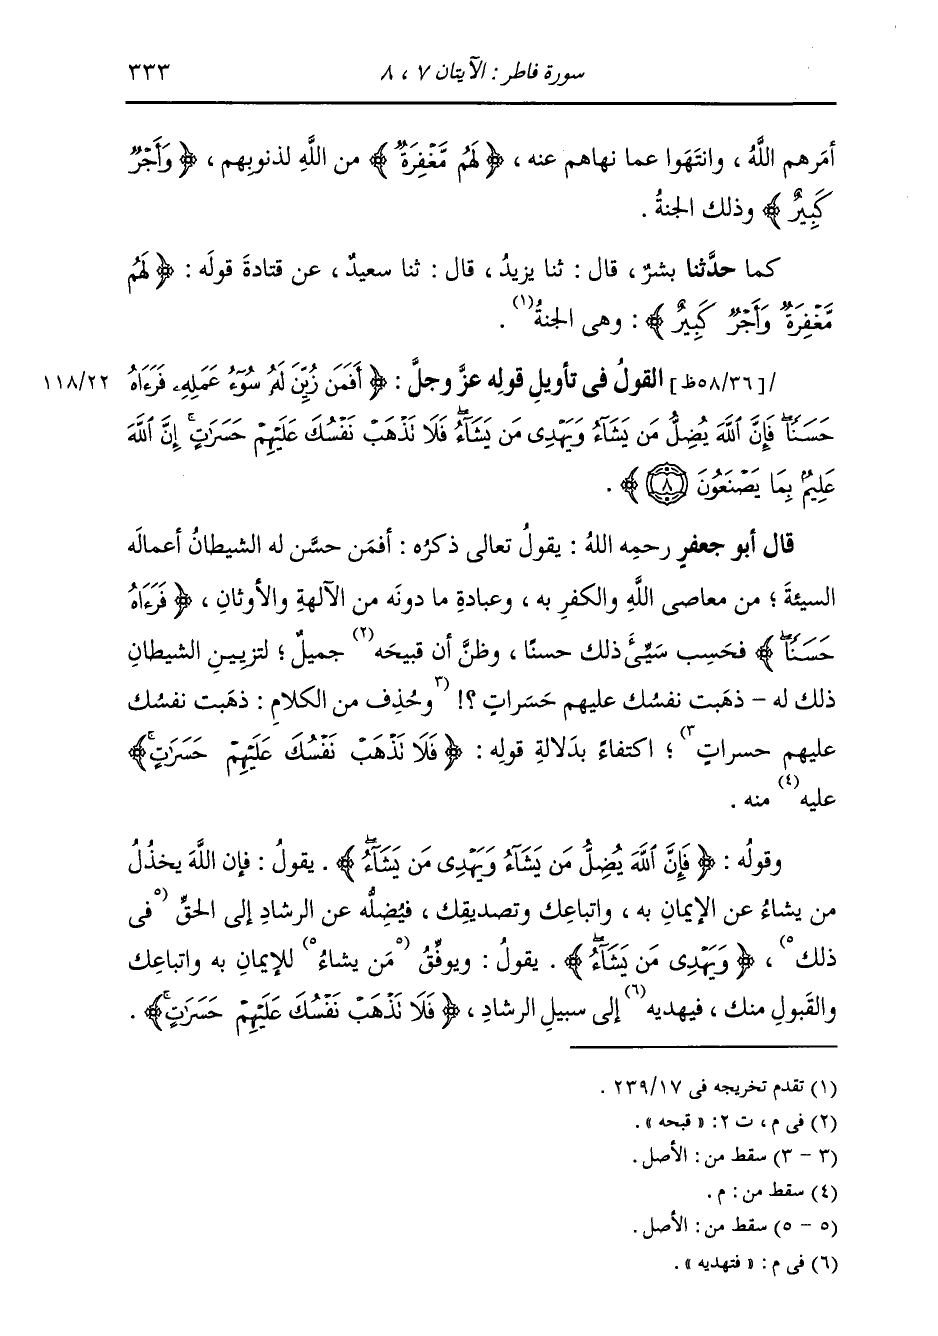 سورة فاطر : الآيتان ٧ ، ٨
٣٣٣
أمَرهم اللَّهُ ، وانتَهَوا عما نهاهم عنه ، ﴿ لَهُم مَّغْفِرَةٌ ﴾ من اللَّهِ لذنوبِهم ، ﴿ وَأَجْرٌ
كَبِيرٌ ﴾ وذلك الجنةُ .
كما حدَّثنا بشرٌ ، قال : ثنا يزيدُ ، قال : ثنا سعيدٌ ، عن قتادةَ قولَه : ﴿ لَهُم
مَّغْفِرَةٌ وَأَجْرٌ كَبِيرٌ ﴾ : وهى الجنةُ(١) .
/[٥٨/٣٦ظ] القولُ فى تأويلِ قولِه عزَّ وجلَّ : ﴿ أَفَمَن زُيِّنَ لَهُ سُوٓءُ عَمَلِهِۦ فَرَءَاهُ ١١٨/٢٢
حَسَنًا ۖ فَإِنَّ ٱللَّهَ يُضِلُّ مَن يَشَآءُ وَيَهْدِى مَن يَشَآءُ ۖ فَلَا تَذْهَبْ نَفْسُكَ عَلَيْهِمْ حَسَرَٰتٍ ۚ إِنَّ ٱللَّهَ
عَلِيمٌۢ بِمَا يَصْنَعُونَ ٨ ﴾ .
قال أبو جعفرٍ رحمِه اللهُ : يقولُ تعالى ذكرُه : أفمَن حسَّن له الشيطانُ أعمالَه
السيئةَ ؛ من معاصى اللَّهِ والكفرِ به ، وعبادةِ ما دونَه من الآلهةِ والأوثانِ ، ﴿ فَرَءَاهُ
حَسَنًا ۖ ﴾ فحَسِب سَيِّئَ ذلك حسنًا ، وظنَّ أن قبيحَه(٢) جميلٌ ؛ لتزيينِ الشيطانِ
ذلك له – ذهَبت نفسُك عليهم حَسَراتٍ ؟! (٣وحُذِف من الكلامِ : ذهَبت نفسُك
عليهم حسراتٍ٣) ؛ اكتفاءً بدَلالةِ قولِه : ﴿ فَلَا تَذْهَبْ نَفْسُكَ عَلَيْهِمْ حَسَرَٰتٍ ۚ ﴾
عليه(٤) منه .
وقولُه : ﴿ فَإِنَّ ٱللَّهَ يُضِلُّ مَن يَشَآءُ وَيَهْدِى مَن يَشَآءُ ۖ ﴾ . يقولُ : فإن اللَّهَ يخذُلُ
من يشاءُ عن الإيمانِ به ، واتباعِك وتصديقِك ، فيُضِلُّه عن الرشادِ إلى الحقِّ (٥فى
ذلك٥) ، ﴿ وَيَهْدِى مَن يَشَآءُ ۖ ﴾ . يقولُ : ويوفِّقُ (٥مَن يشاءُ٥) للإيمانِ به واتباعِك
والقَبولِ منك ، فيهديه(٦) إلى سبيلِ الرشادِ ، ﴿ فَلَا تَذْهَبْ نَفْسُكَ عَلَيْهِمْ حَسَرَٰتٍ ۚ ﴾ .
(١) تقدم تخريجه فى ٢٣٩/١٧ .
(٢) فى م ، ت ٢ : « قبحه » .
(٣ – ٣) سقط من : الأصل .
(٤) سقط من : م .
(٥ – ٥) سقط من : الأصل .
(٦) فى م : « فتهديه » .